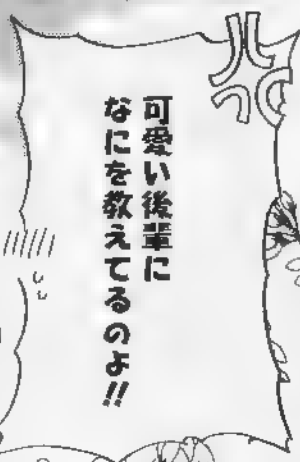 可愛い後輩に
なにを教えてるのよ!!